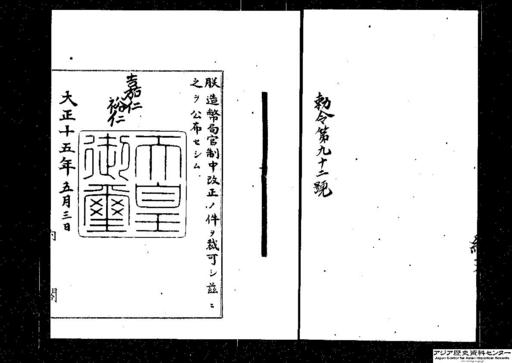 勅令第九十二號
朕造幣局官制中改正ノ件ヲ裁可シ茲ニ
之ヲ公布セシム
嘉仁
裕仁
天皇御璽
大正十五年五月三日
内閣
アジア歴史資料センター
Japan Center for Asian Historical Records